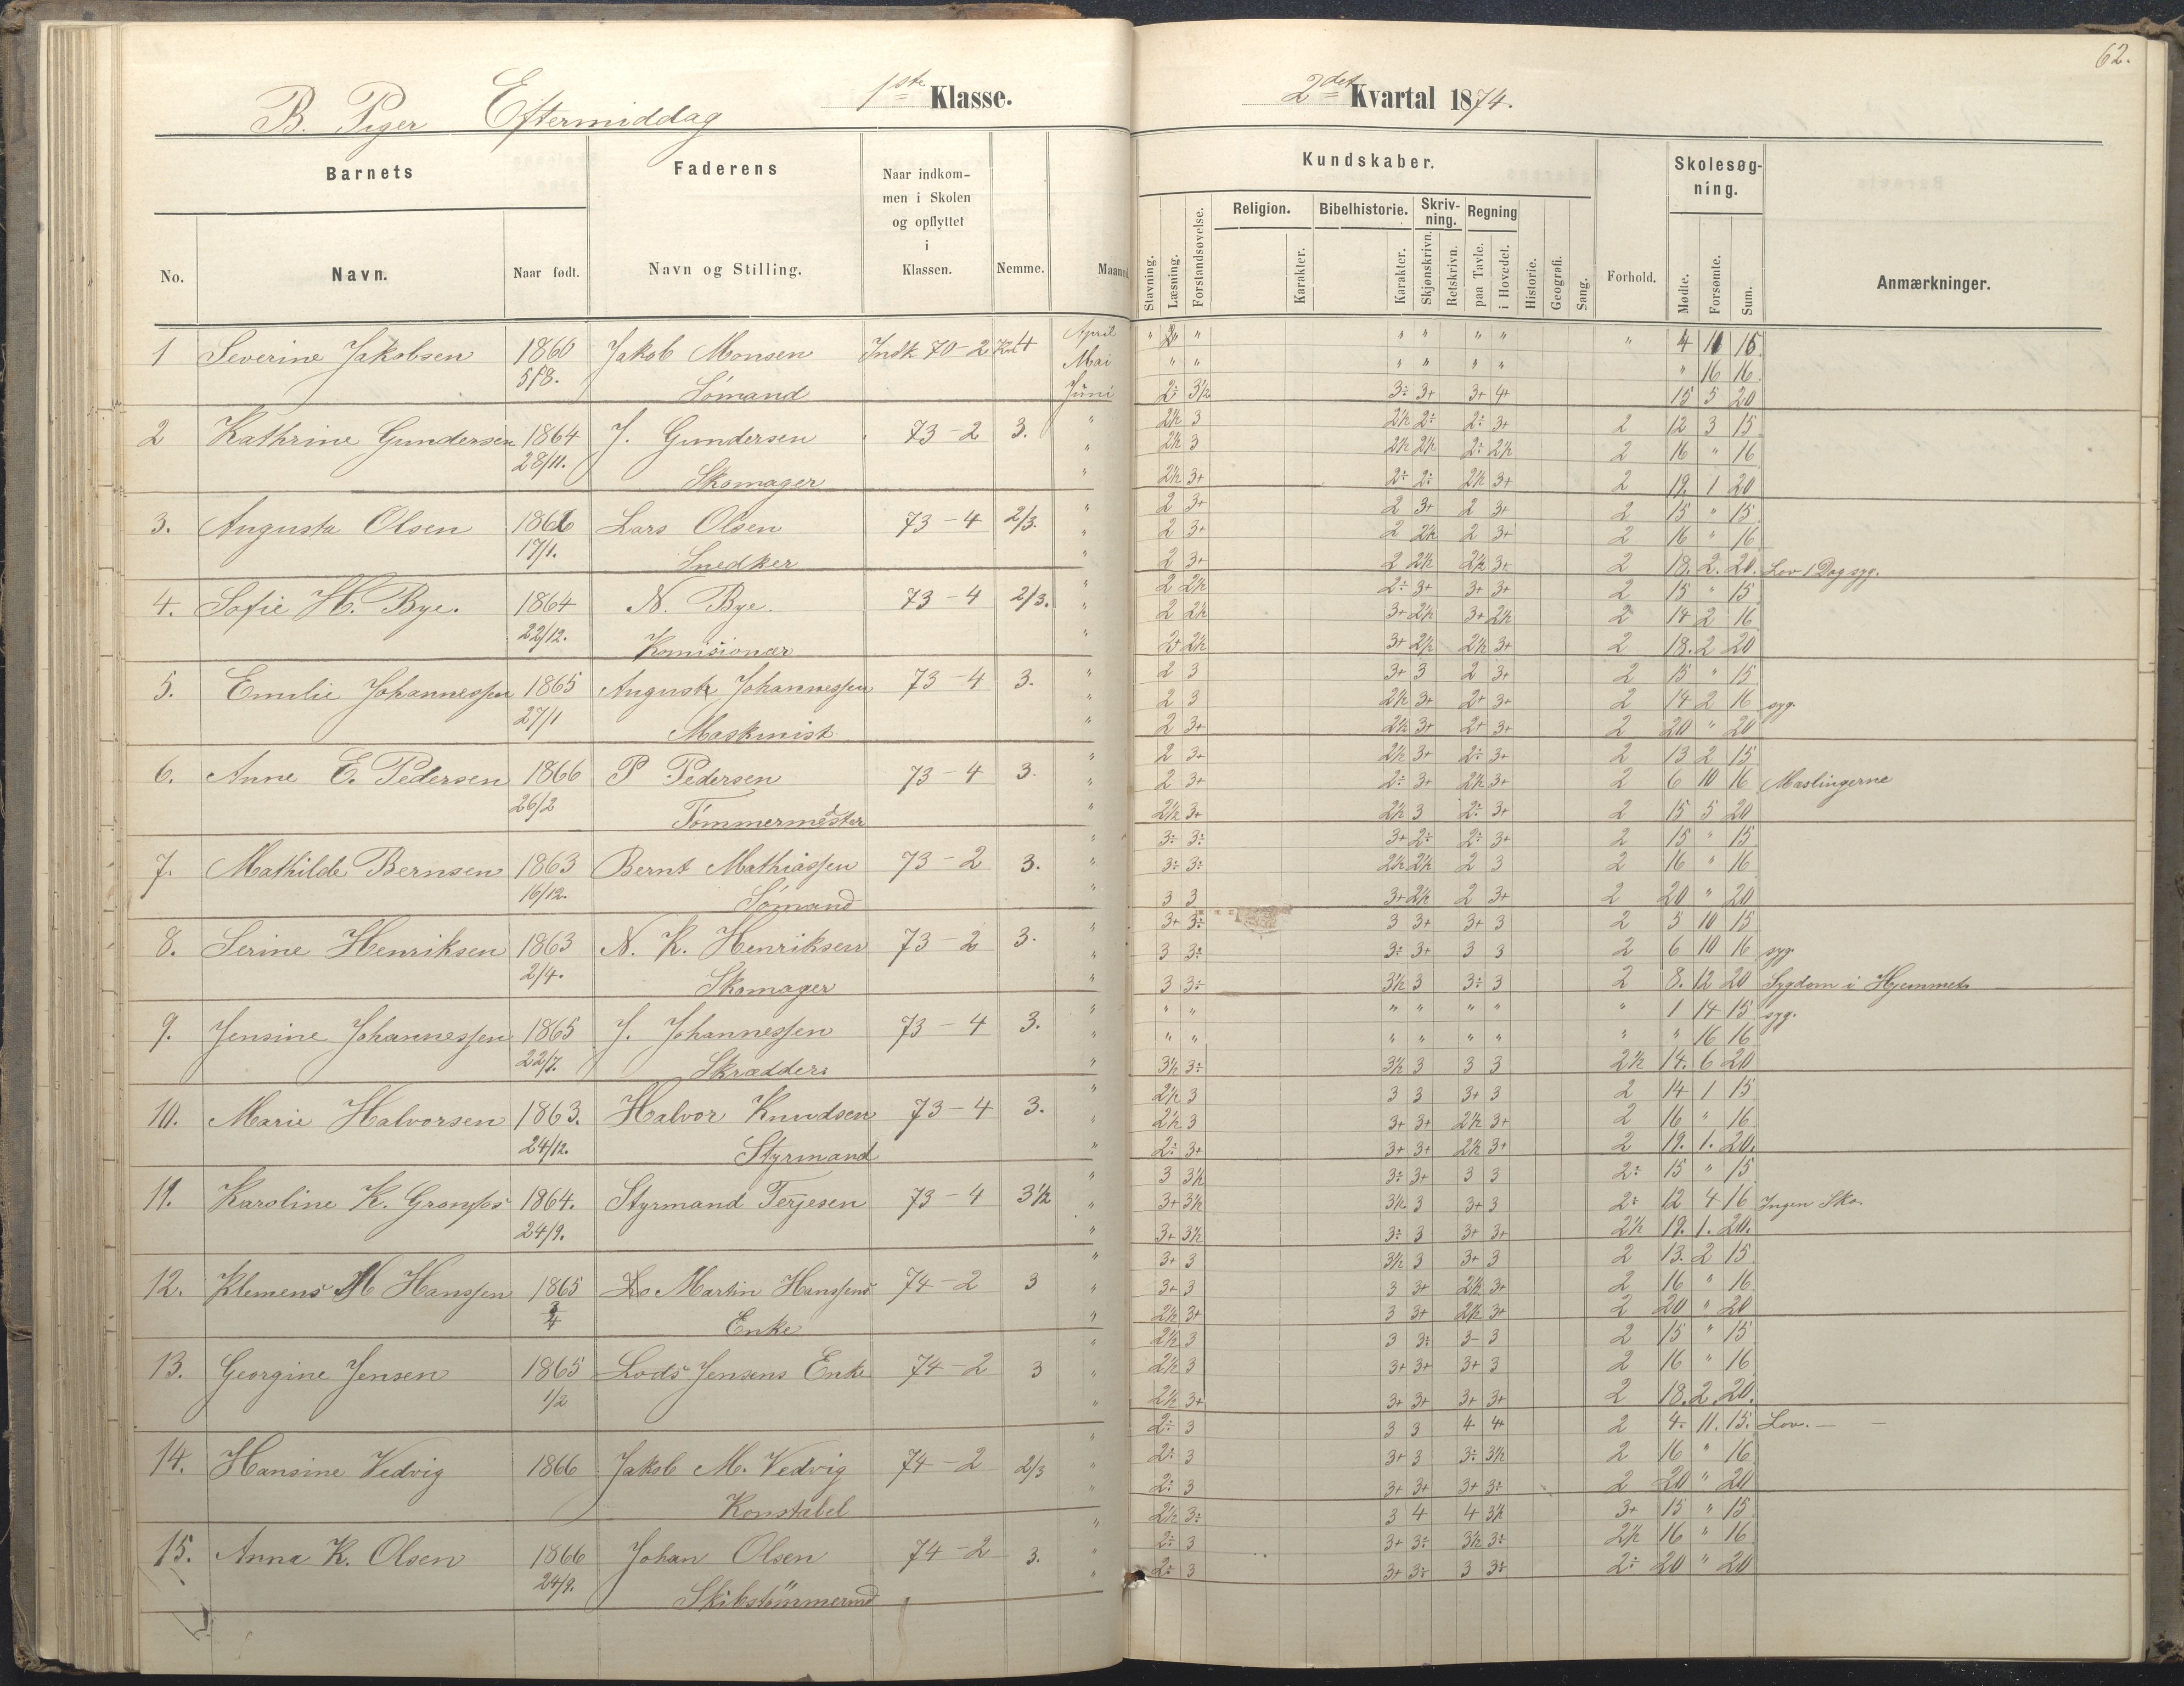 62.
B. Piger Eftermiddag 1ste Klasse. 2det Kvartal 1874.
Barnets Faderens Naar indkommen i Skolen og opflyttet i Klassen. Nemme. Maaned
No. Navn. Naar født. Navn og Stilling.
Kundskaber. Skolesøgning.
Stavning. Læsning. Forstandsøvelse. Religion. Karakter. Bibelhistorie. Karakter. Skrivning. Skjønskrivn. Retskrivn. Regning paa Tavle. i Hovedet. Historie. Geografi. Sang. Forhold. Mødte. Forsømte. Sum. Anmærkninger.
1 Severine Jakobsen 1860 Jakob Monsen Indk 70-2 4 April " " " " " " " 4 11 15
Mai " " " " " " " 16 16
5/8. Sømand Juni 2÷ 3½ 3÷ 3+ 3+ 4+ 15 5 20
2 Kathrine Gundersen 1864 J. Gundersen 73-2 3. " 2½ 3 2½ 2÷ 2÷ 3+ 2 12 3 15
28/11. " 2½ 3 2½ 2½ 2÷ 2½ 2 16 " 16
Skomager " 2½ 3+ 2÷ 2÷ 2½ 3+ 2 19. 1 20
3. Augusta Olsen Lars Olsen 73-4 2/3. " 2 3+ 2 3+ 2 3+ 2 15 " 15
17/1. " 2 3+ 2 2½ 2 3+ 2 16 " 16
Snedker " 2 3+ 2 2½ 2½ 3+ 2 18. 2. 20. Lov 1 Dag syg.
4. Sofie H. Bye. 1864 N. Bye. 73-4 2/3. " 2 2½ 2÷ 3+ 3+ 3+ 2 15 " 15
22/12. " 2 2½ 3+ 2½ 3+ 2½ 2 14 2 16
Komisionær " 2+ 2½ 3+ 2½ 2½ 3+ 2 18. 2 20
5. Emilie Johannessen 1865 August Johannessen 73-4 3. " 2 3 3+ 3 2 3+ 2 15 " 15
27/1 " 2 3 2½ 3+ 2+ 3+ 2 14 2 16 syg.
Maskinist " 2 3+ 2½ 3+ 2+ 3+ 2 20 " 20
6. Anne E. Pedersen 1866 P Pedersen 73-4 3. " 2 3+ 2½ 3+ 2÷ 3+ 2 13 2 15
26/2 " 2 3+ 2÷ 3+ 2½ 3+ 2 6 10 16 Maslingerne
Tømmermester " 2½ 3+ 2½ 3 2÷ 3+ 2 15 5 20
7. Mathilde Bernsen 1863 Bernt Mathiassen 73-2 3. " 3÷ 3÷ 3+ 2÷ 2÷ 3+ 2 15 " 15
16/12. " 3÷ 3÷ 2½ 2½ 2 3 2 16 " 16
Sømand " 3 3 3+ 2½ 2 3+ 2 20 " 20
8. Serine Henriksen 1863 N. K. Henriksen 73-2 3. " 3+ 3÷ 3 3+ 3+ 3 2 5 10 15
2/4. " 3 3÷ 3÷ 3+ 3 3 2 6 10 16 syg.
Skomager " 3 3÷ 3½ 3 3÷ 3 2 8. 12 20 Sygdom i Hjemmet
9. Jensine Johannessen 1865 J. Johannessen 73-4 3. " " " " " " " " 1 14 15 syg.
22/7. " " " " " " " " " 16 16
Skrædder " 3½ 3÷ 3½ 3 3 3 2½ 14. 6 20
10. Marie Halvorsen 1863. Halvor Knudsen 73-4 3. " 2½ 3 3 3 3+ 3 2 14 1 15
24/12. " 2½ 3 3+ 3+ 2½ 3+ 2 16 " 16
Styrmand " 2÷ 3+ 3+ 3+ 2½ 3+ 2 19. 1. 20.
11. Karoline K. 1864. Styrmand Terjesen 73-4 3½ " 3 3½ 3÷ 3+ 3 3 2÷ 15 " 15
24/9. " 3+ 3½ 3½ 3 3+ 3 2÷ 12 4 16 Ingen Sko.
" 3+ 3½ 3÷ 3 3+ 3+ 2½ 19. 1. 20.
12. Klemens M Hanssen 1865 Martin Hanssens 74-2 3 " 3+ 3 3½ 3 3+ 3 2 13. 2 15
" 3+ 3 3 3+ 2½ 3+ 2 16 " 16
Enke " 2½ 3+ 3 3+ 2½ 3+ 2 20 " 20
13. Georgine Jensen 1865 Lods Jensens Enke 74-2 3 " 2½ 3 3 3÷ 3- 3 2 15 " 15
1/2 " 2½ 3 3+ 3+ 3+ 3 2 16 " 16
" 2½ 3+ 3+ 3+ 3+ 3+ 2 18. 2. 20.
14. Hansine Vedvig 1866 Jakob M. Vedvig 74-2 2/3 " 2÷ 3 3 3 4 4+ 2 4. 11. 15. Lov. — —
" 2÷ 3 3+ 3 3÷ 3½ 2 16 " 16
Konstabel " 2÷ 3 3+ 3+ 3+ 3÷ 2 20 " 20
15. Anna K. Olsen 1866 Johan Olsen 74-2 3. " 2½ 3÷ 3 4 4 3½ 3+ 15 " 15
24/9. " 2÷ 3 3+ 3÷ 3½ 3÷ 2½ 16 " 16
Skibstømmermd " 2÷ 3 3+ 3÷ 3 3÷ 2÷ 20 " 20